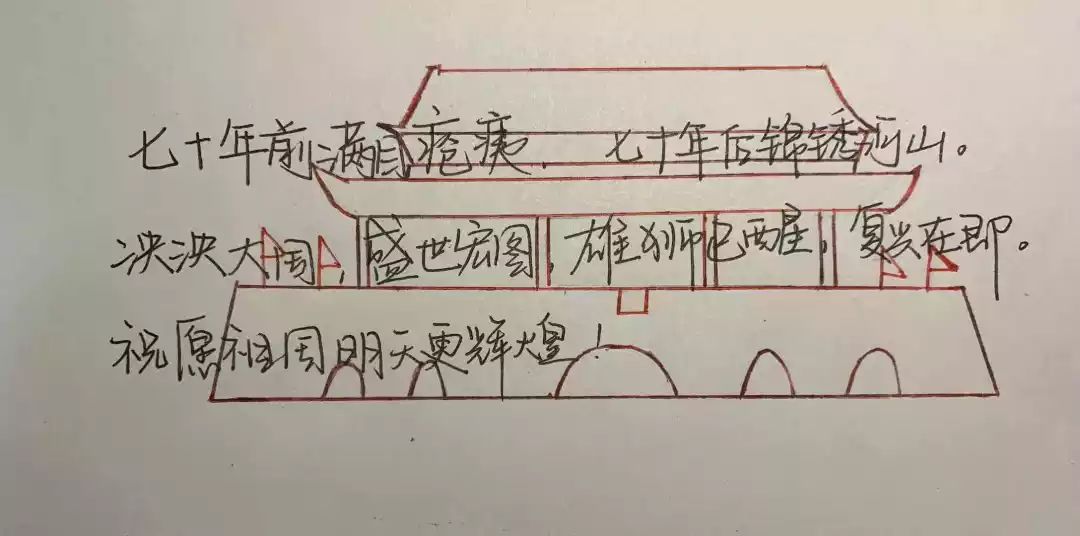 七十年前满目疮痍，七十年后锦锈河山。
泱泱大国，盛世宏图，雄狮已醒，复兴在即。
祝愿祖国明天更辉煌！